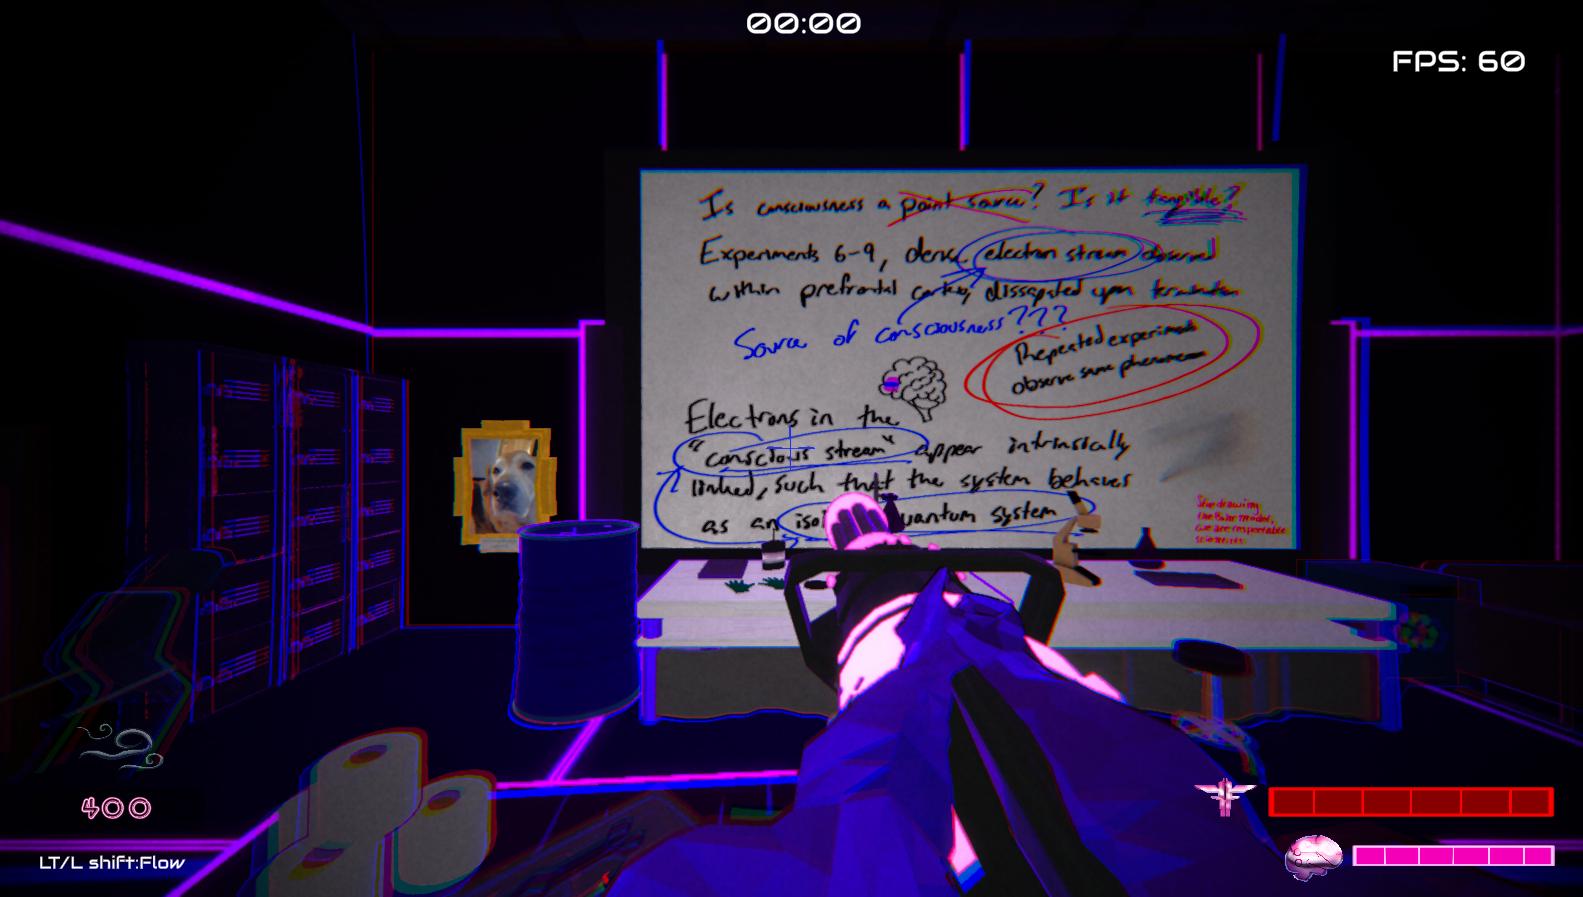 00:00
FPS: 60
Is consciousness a point source? Is it tangible?
Experiments 6-9, dense electron stream observed
within prefrontal cortex, dissapated upon termination
Source of consciousness???
Repeated experiment
observe same phenomenon
Electrons in the
"conscious stream" appear intrinsically
linked, such that the system behaves
as an quantum system
Stop drawing
respectable
scientists
400
LT/L shift:Flow